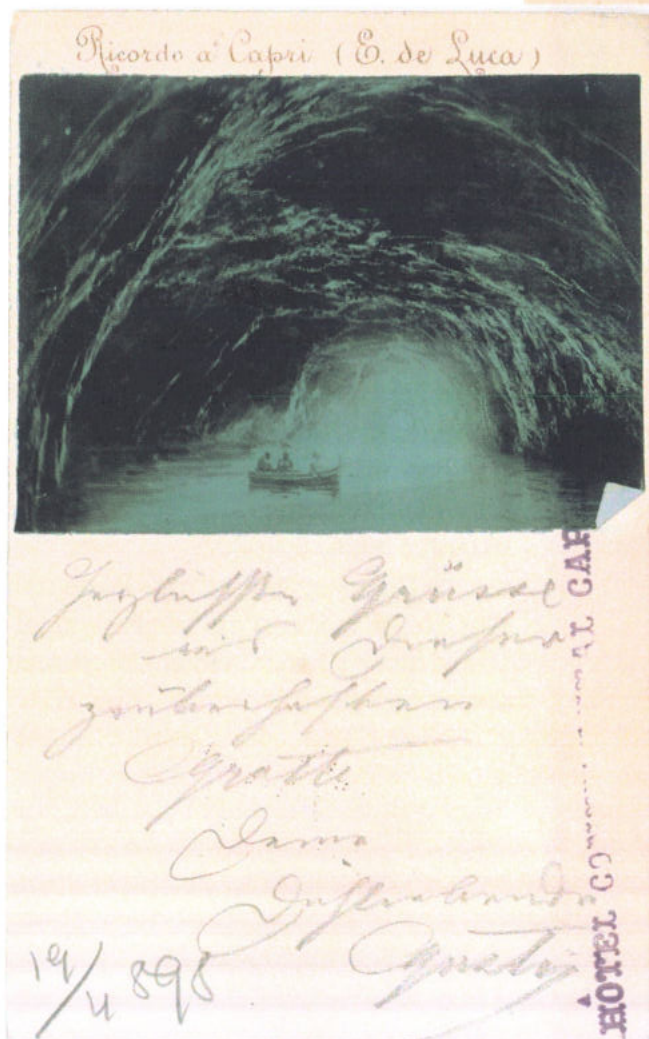 Ricordo a' Capri (E. de Luca)
Herzlichste Grüsse
aus dieser
zauberhaften
Grotte
Deine
Dichliebende
19/4 898
HÔTEL CONTINENTAL CAP